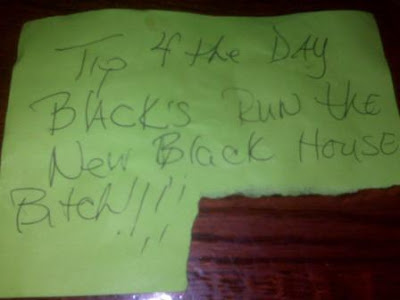 Tip 4 the DAY
BlAck's Run the
New Black House
Bitch!!!